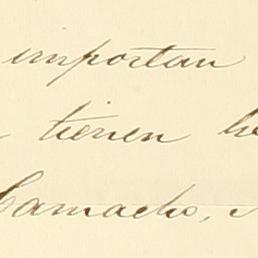 importan
tienen he
Camacho,